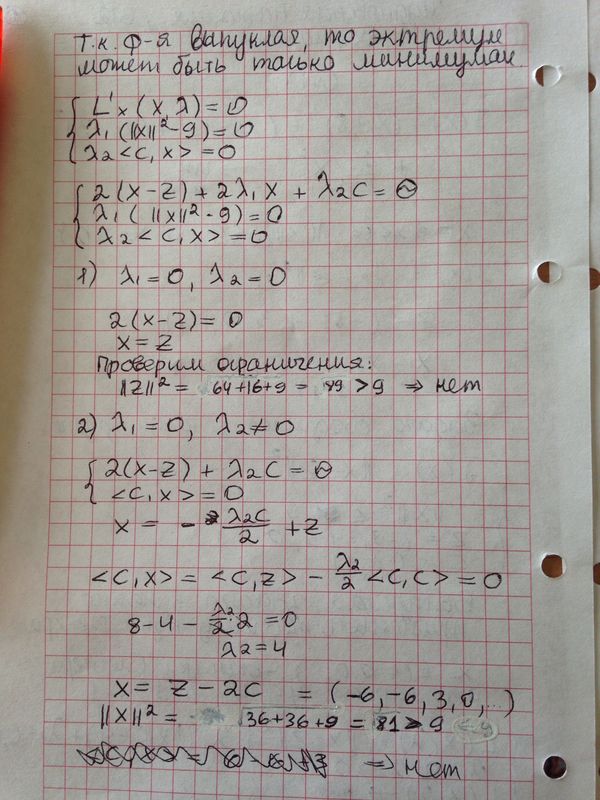 Т.к. ф-я выпуклая, то экстремум
может быть только минимумом
L'x (x, λ) = 0
λ1 (||x||² - 9) = 0
λ2 <c, x> = 0
2(x-z) + 2λ1 x + λ2 c = Θ
λ1 ( ||x||² - 9) = 0
λ2 <c, x> = 0
1) λ1 = 0, λ2 = 0
2(x-z) = 0
x = z
Проверим ограничения:
||z||² = 64+16+9 = 89 > 9 ⇒ нет
2) λ1 = 0, λ2 ≠ 0
2(x-z) + λ2 c = Θ
<c, x> = 0
x = - λ2c/2 + z
<c, x> = <c, z> - λ2/2 <c, c> = 0
8-4 - λ2/2 · 2 = 0
λ2 = 4
x = z - 2c = (-6, -6, 3, 0, ...)
||x||² = 36+36+9 = 81 > 9
⇒ нет